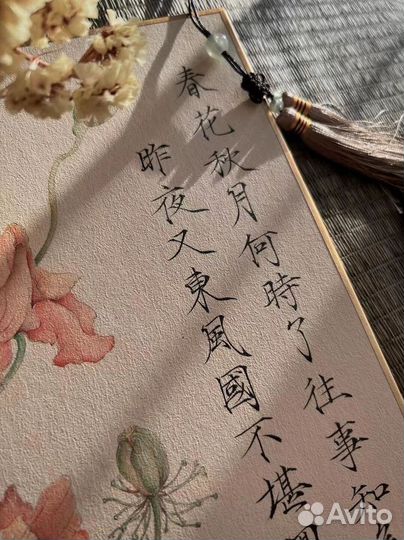 春花秋月何時了往事知
昨夜又東風國不堪
Avito